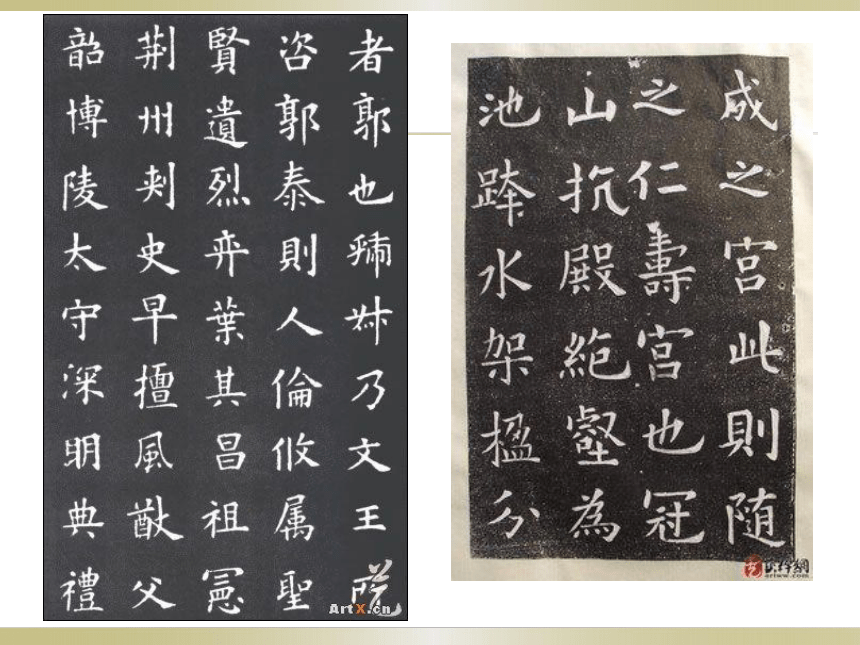 者郭也虢叔乃文王所
咨郭泰則人倫攸属聖
賢遺烈弈葉其昌祖憲
荊州刺史早擅風猷父
韶博陵太守深明典禮
ArtX.cn
成之宮此則随
之仁壽宮也冠
山抗殿絶壑為
池跨水架楹分